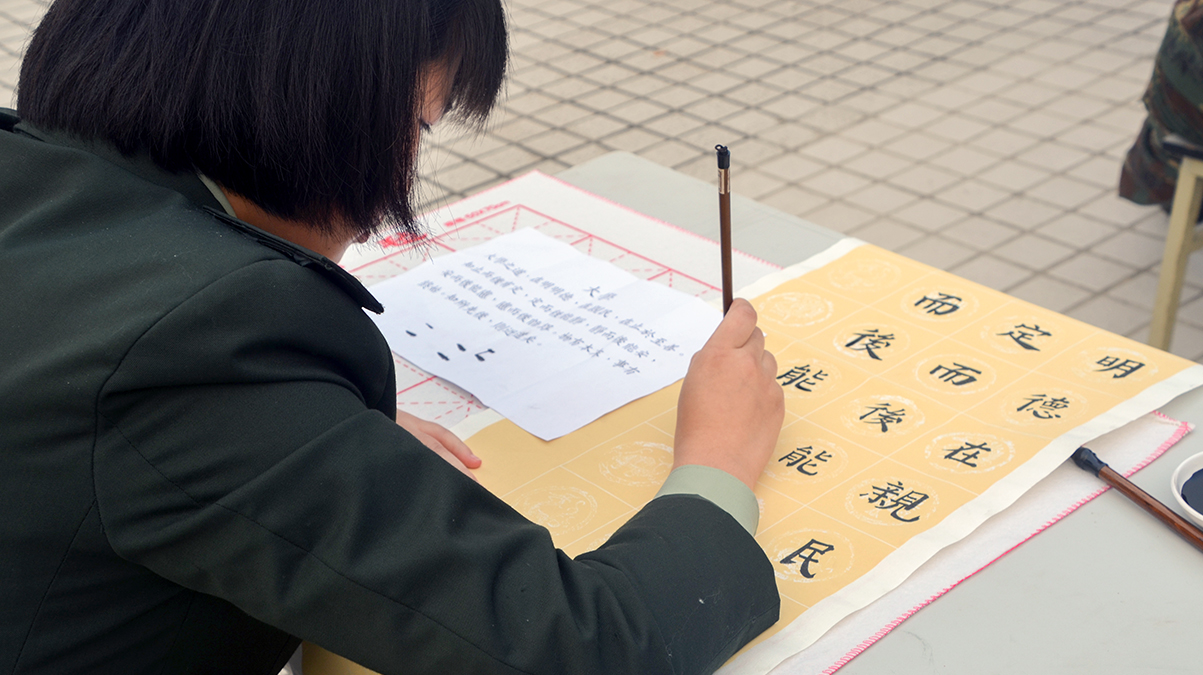 大學
大學之道，在明明德，在親民，在止於至善。
知止而後有定，定而後能靜，靜而後能安，
安而後能慮，慮而後能得。物有本末，事有
終始，知所先後，則近道矣。
明德在親民
定而後能
而後能